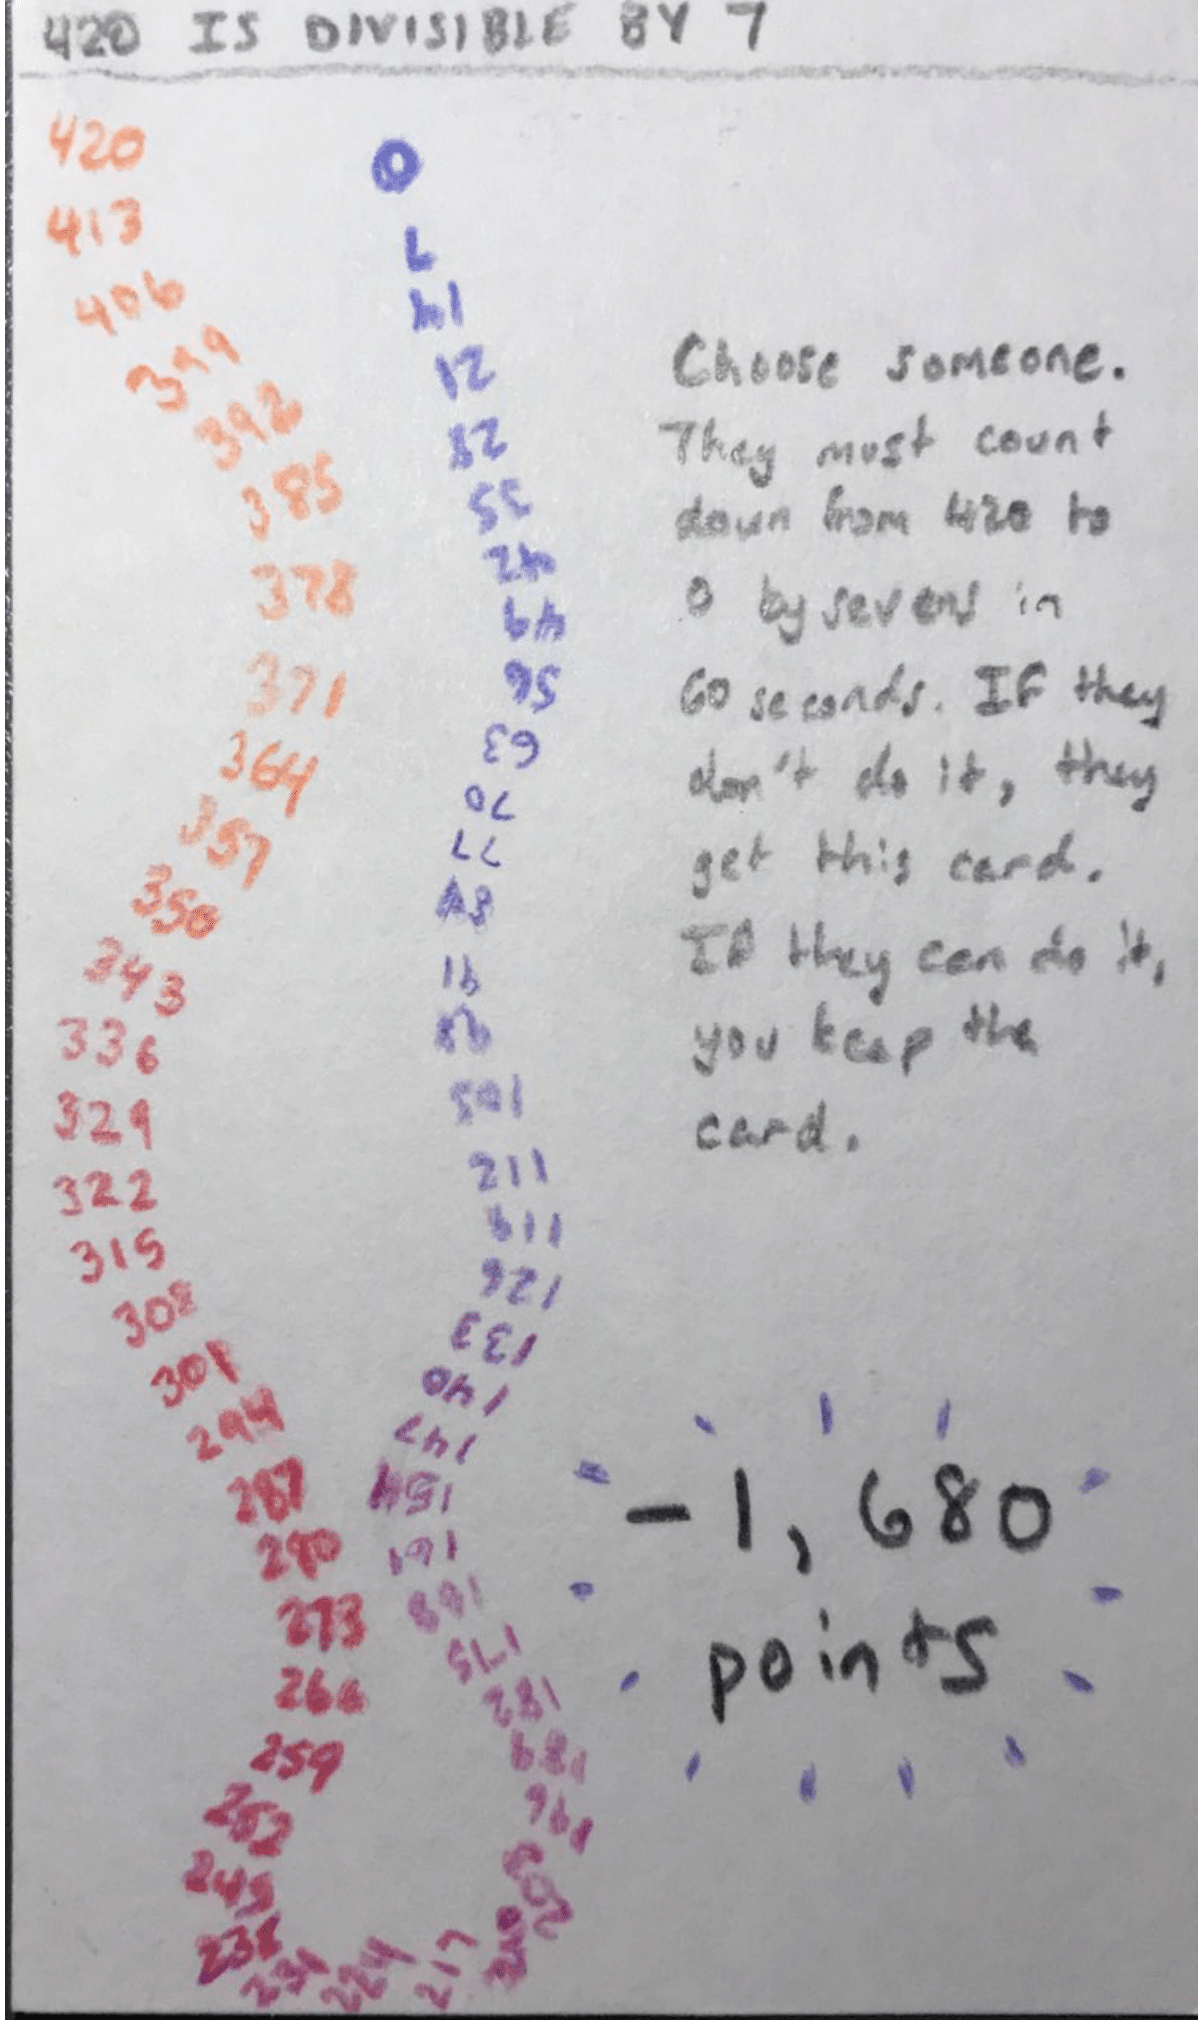 420 IS DIVISIBLE BY 7
420
413
406
399
392
385
378
371
364
357
350
343
336
329
322
315
308
301
294
287
280
273
266
259
252
245
238
231
224
217
210
203
196
189
182
175
168
161
154
147
140
133
126
119
112
105
98
91
84
77
70
63
56
49
42
35
28
21
14
7
0
Choose someone.
They must count
down from 420 to
0 by sevens in
60 seconds. If they
don't do it, they
get this card.
If they can do it,
you keep the
card.
-1,680
points